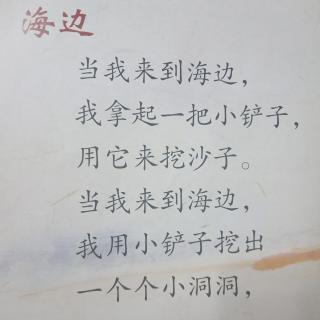 海边
当我来到海边，
我拿起一把小铲子，
用它来挖沙子。
当我来到海边，
我用小铲子挖出
一个个小洞洞，